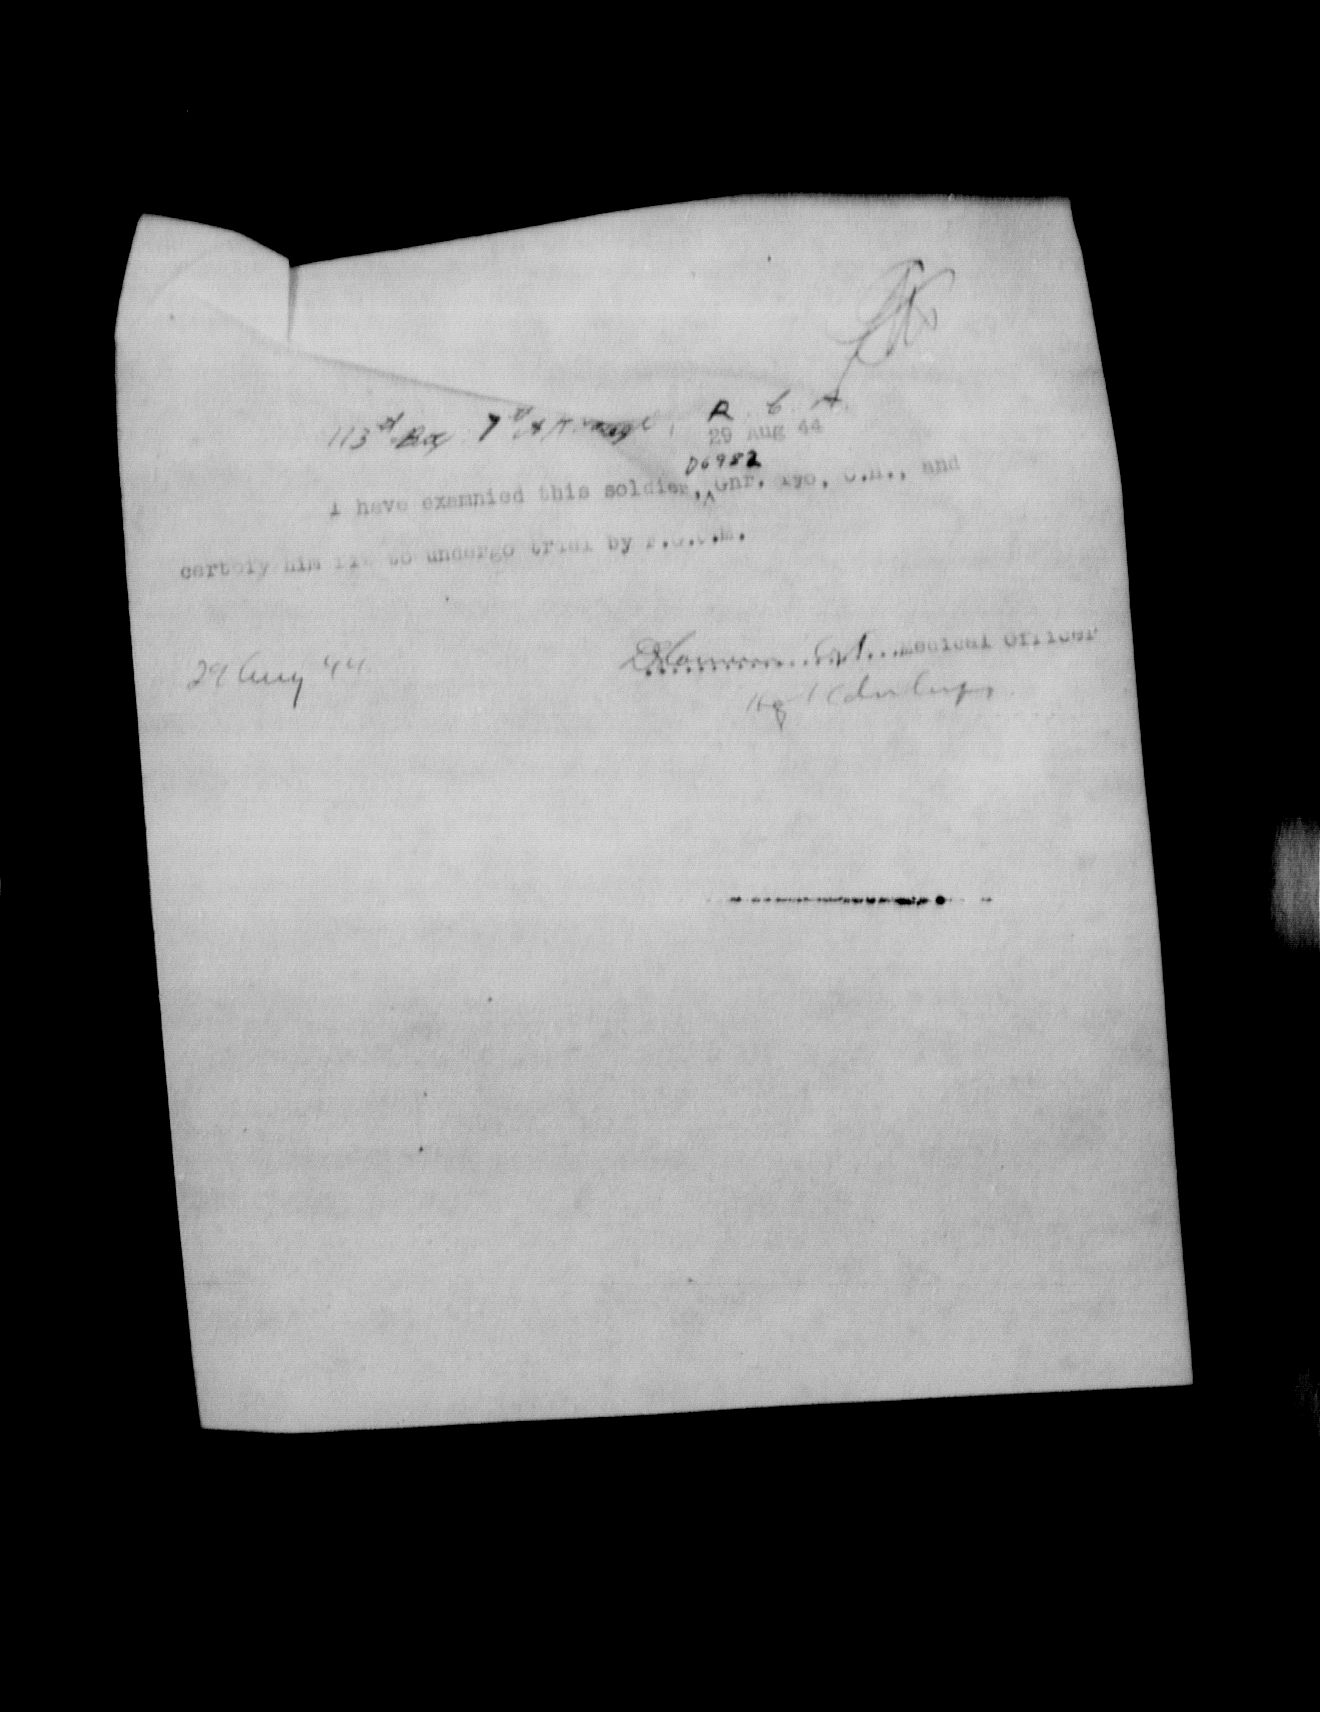 113 Bty 7th A.T. Regt, R. C. A.
29 Aug 44
D6982
I have examnied this soldier, ^Gnr. C.H., and
certify him fit to undergo trial by F.G.C.M.
29 Aug 44
Capt. Medical Officer
Hq 1 Cdn Corps